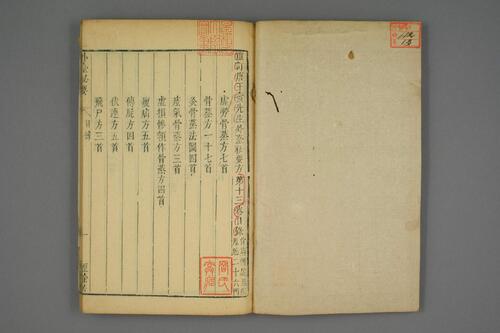 重訂唐王燾先生外臺秘要方第十三卷目錄
虛勞骨蒸方七首
骨蒸方一十七首
灸骨蒸法圖四首
痃氣骨蒸方三首
虛損慘顇作骨蒸方四首
瘦病方五首
傳屍方四首
伏連方五首
飛尸方三首
外臺秘要
目錄